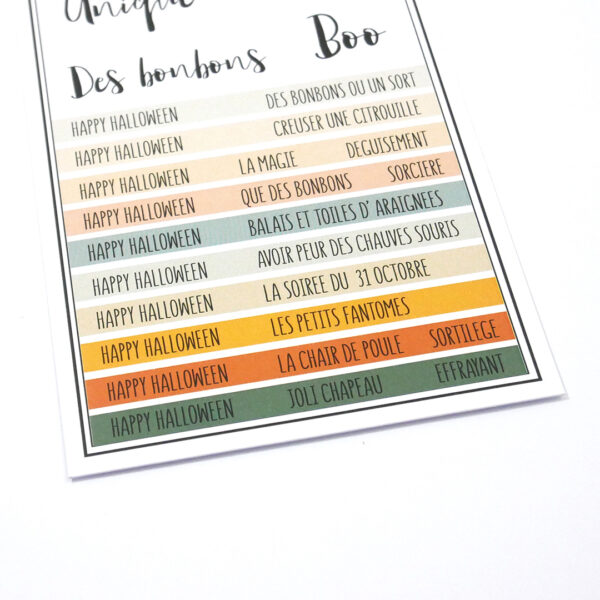 Unique
Des bonbons Boo
HAPPY HALLOWEEN DES BONBONS OU UN SORT
HAPPY HALLOWEEN CREUSER UNE CITROUILLE
HAPPY HALLOWEEN LA MAGIE DEGUISEMENT
HAPPY HALLOWEEN QUE DES BONBONS SORCIERE
HAPPY HALLOWEEN BALAIS ET TOILES D' ARAIGNEES
HAPPY HALLOWEEN AVOIR PEUR DES CHAUVES SOURIS
HAPPY HALLOWEEN LA SOIREE DU 31 OCTOBRE
HAPPY HALLOWEEN LES PETITS FANTOMES
HAPPY HALLOWEEN LA CHAIR DE POULE SORTILEGE
HAPPY HALLOWEEN JOLI CHAPEAU EFFRAYANT